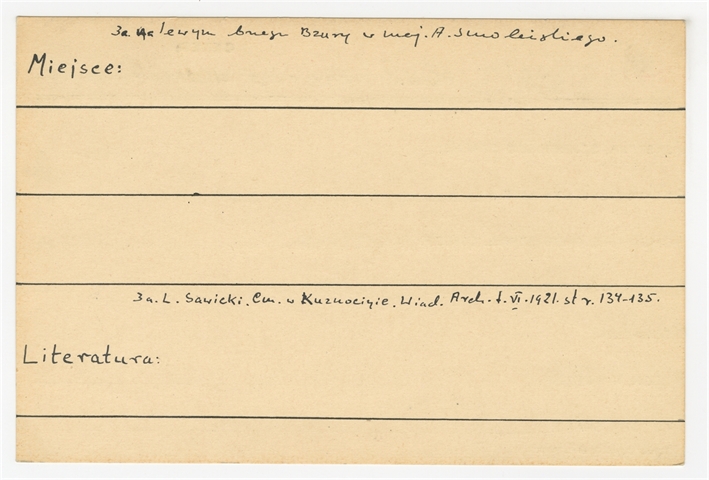 3a. na lewym brzegu Bzury w maj. A. Smoleńskiego.
Miejsce:
3a. L. Sawicki. Cm. w Kuznocinie. Wiad. Arch. t. VI. 1921. str. 134-135.
Literatura: